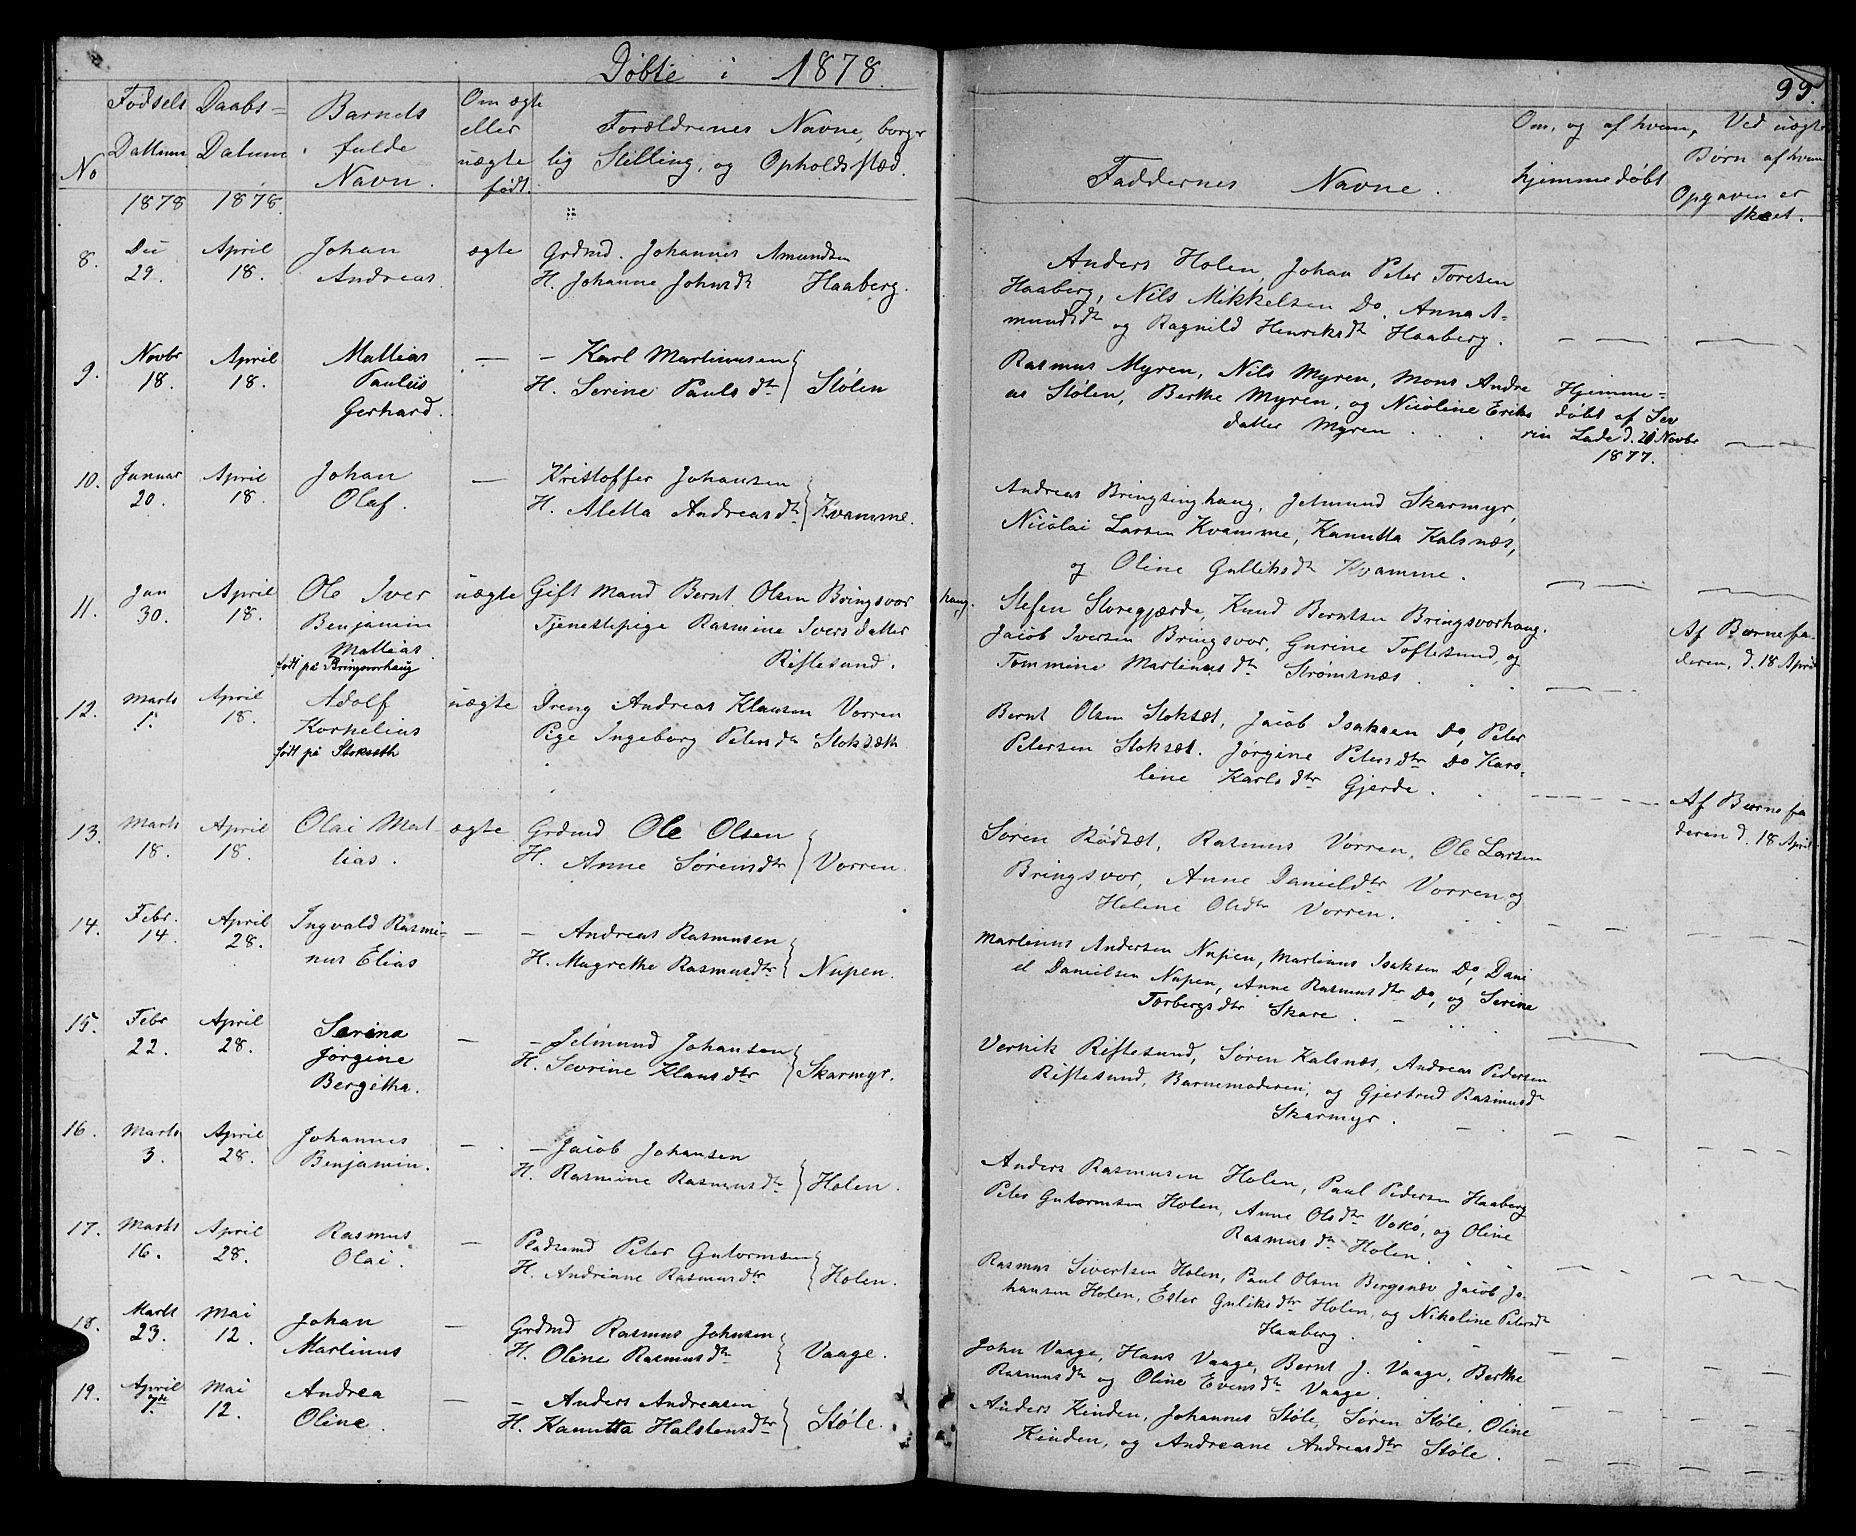 Døbte i 1878.
99.
No
Fødsels Dattum
Daabs- Datum
Barnets fulde Navn.
Om ægte eller uægte født.
Forældrenes Navne, borger
lig Stilling, og Opholdssted.
Faddernes Navne.
Om, og af hvem, hjemmedøbt
Ved uægte Børn af hvem Opgaven er skeet.
1878 1878.
8. Dec 29. April 18. Johan Andreas. ægte
Grdmd. Johannes Amundsen
H. Johanne Johnsdtr Haaberg.
Anders Holen, Johan Peter Toresen
Haaberg, Nils Mikkelsen Do, Anna A-
mundsdtr og Ragnild Henriksdtr Haaberg.
9. Novbr 18. April 18. Mattias Paulus Gerhard. —
— Karl Martinusen
H. Serine Paulsdtr Stølen
Rasmus Myren, Nils Myren, Mons Andre
as Stølen, Berthe Myren, og Nicoline Eriks
datter Myren
Hjemme-
døbt af Sev
rin Lade d. 21 Novbr
1877.
10. Januar 20. April 18. Johan Olaf. —
Kristoffer Johansen
H. Aletta Andreasdtr Kvamme.
Andreas Bringsinghaug, Jetmund Skarmyr,
Nicolai Larsen Kvamme, Kanutta Kalsnæs,
og Oline Gulliksdtr Kvamme.
11. Jan 30. April 18. Ole Iver Benjamin Mattias.
født på Bringsvorhaug
uægte
Gift Mand Bernt Olsen Bringsvor haug.
Tjenestepige Rasmine Iversdatter
Riftesund.
Stefen Storegjærde, Knud Berntsen Bringsvorhaug.
Jacob Iversen Bringsvor, Gurine Toftesund, og
Tommine Martinusdtr Strømsnæs.
Af Barnefa-
deren, d. 18 April
12. Marts 1. April 18. Adolf Kornelius
født på Stokseth
uægte
Dreng Andreas Klausen Vorren
Pige Ingeborg Petersdtr Stoksæth
Bernt Olsen Stoksæt, Jacob Isaksen Do, Peter
Petersen Stoksæt. Jørgine Petersdtr Do Karo-
line Karlsdtr Gjerde.
Af Barnefa
deren d. 18 April
13. Marts 18. April 18. Olai Mat-
tias. ægte
Grdmd Ole Olsen
H. Anne Sørensdtr Vorren.
Søren Rødsæt, Rasmus Vorren, Ole Larsen
Bringsvor, Anne Danieldtr Vorren og
Helene Olsdtr Vorren.
14. Febr. 14. April 28. Ingvald Rasmi-
nus Elias —
— Andreas Rasmusen
H. Magrethe Rasmusdtr Nupen.
Martinus Andersen Nupen, Martinus Isaksen Do, Dani
el Danielsen Nupen, Anne Rasmusdtr Do, og Serine
Torbergsdtr Skare.
15. Febr 22. April 28. Serina Jørgine Bergitha. —
— Jetmund Johansen
H. Sevrine Klausdtr Skarmyr.
Vernik Riftesund, Søren Kalsnæs, Andreas Pedersen
Riftesund, Barnemoderen, og Gjertrud Rasmusdtr
Skarmyr.
16. Marts 3. April 28. Johannes Benjamin. —
— Jacob Johansen
H. Rasmine Rasmusdtr Holen.
Anders Rasmusen Holen, Paul Pedersen Haaberg
Peter Gutormsen Holen, Anne Olsdtr Voksø, og Oline
Rasmusdtr Holen.
17. Marts 16. April 28. Rasmus Olai. —
Pladsmd Peter Gutormsen
H. Andriane Rasmusdtr Holen.
Rasmus Sivertsen Holen, Paul Olsen Bergsnæv Jacob Jo-
hansen Holen, Ester Guliksdtr Holen, og Nikoline Petersdtr
Haaberg.
18. Marts 23. Mai 12. Johan Martinus —
Grdmd Rasmus Johnsen
H. Oline Rasmusdtr Vaage.
John Vaage, Hans Vaage, Bernt J. Vaage, Berthe
Rasmusdtr og Oline Evensdtr Vaage.
19. April 7de Mai 12. Andrea Oline. —
— Anders Andreasen
H. Kanutta Halstensdtr Støle.
Anders Kinden, Johannes Støle, Søren Støle, Oline
Kinden, og Andreane Andreasdtr Støle.